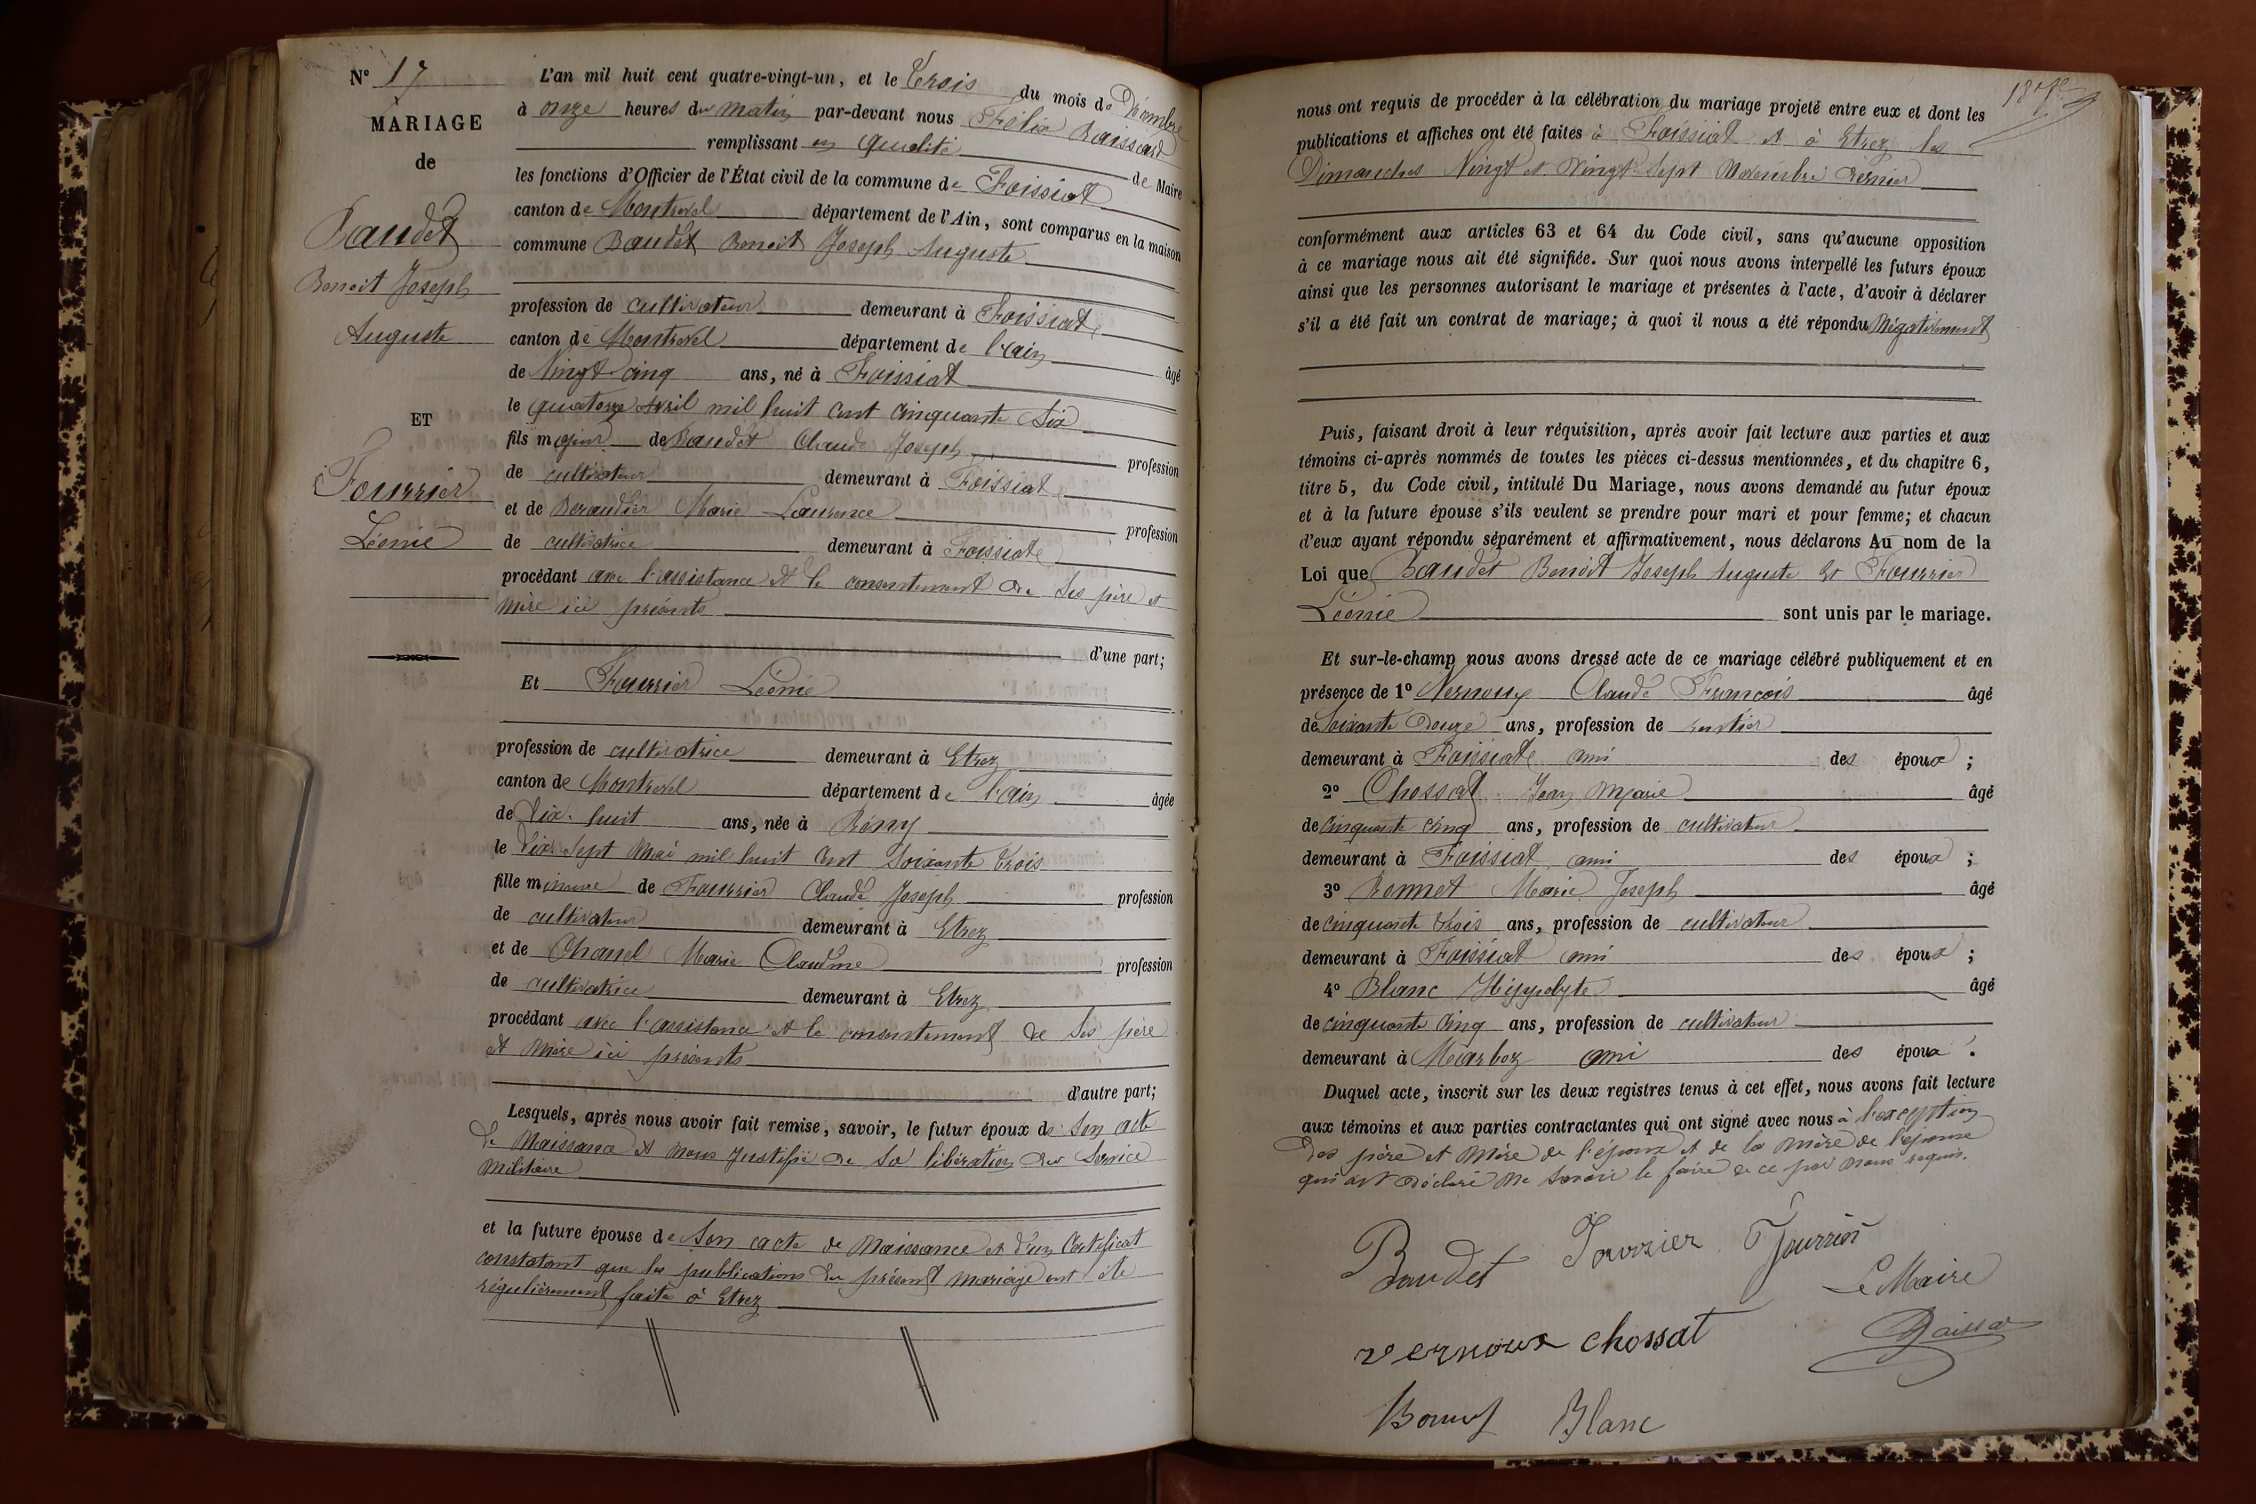 N° 17
MARIAGE
de
Baudet
Benoit Joseph
Auguste
ET
Fourrier
Léonie
L'an mil huit cent quatre-vingt-un, et le Trois du mois de Décembre
à onze heures du matin par-devant nous Félix Baissard
remplissant en qualité de Maire
les fonctions d'Officier de l'État civil de la commune de Foissiat
canton de Montrevel département de l'Ain, sont comparus en la maison
commune Baudet Benoit Joseph Auguste
profession de cultivateur demeurant à Foissiat
canton de Montrevel département de l'ain
âgé
de Vingt cinq ans, né à Foissiat
le quatorze Avril mil huit cent cinquante Six
fils majeur de Baudet Claude Joseph profession
de cultivateur demeurant à Foissiat
et de Beraudier Marie Laurence profession
de cultivatrice demeurant à Foissiat
procédant avec l'assistance et le consentement de ses père et
mère ici présents
d'une part;
Et Fourrier Léonie
profession de cultivatrice demeurant à Etrez
canton de Montrevel département de l'ain âgée
de Dix-huit ans, née à Bény
le Dix Sept Mai mil huit cent Soixante Trois
fille mineure de Fourrier Claude Joseph profession
de cultivateur demeurant à Etrez
et de Chanel Marie Claudine profession
de cultivatrice demeurant à Etrez
procédant avec l'assistance et le consentement de ses père
et mère ici présents
d'autre part;
Lesquels, après nous avoir fait remise, savoir, le futur époux de Son acte
de Naissance et nous justifié de sa libération du Service
Militaire
et la future épouse de Son acte de Naissance et d'un Certificat
constatant que les publications du présent mariage ont été
régulièrement faite à Etrez
nous ont requis de procéder à la célébration du mariage projeté entre eux et dont les
publications et affiches ont été faites à Foissiat et à Etrez les
Dimanches Vingt et Vingt Sept Novembre dernier
conformément aux articles 63 et 64 du Code civil, sans qu'aucune opposition
à ce mariage nous ait été signifiée. Sur quoi nous avons interpellé les futurs époux
ainsi que les personnes autorisant le mariage et présentes à l'acte, d'avoir à déclarer
s'il a été fait un contrat de mariage; à quoi il nous a été répondu Négativement
Puis, faisant droit à leur réquisition, après avoir fait lecture aux parties et aux
témoins ci-après nommés de toutes les pièces ci-dessus mentionnées, et du chapitre 6,
titre 5, du Code civil, intitulé Du Mariage, nous avons demandé au futur époux
et à la future épouse s'ils veulent se prendre pour mari et pour femme; et chacun
d'eux ayant répondu séparément et affirmativement, nous déclarons Au nom de la
Loi que Baudet Benoit Joseph Auguste et Fourrier
Léonie sont unis par le mariage.
Et sur-le-champ nous avons dressé acte de ce mariage célébré publiquement et en
présence de 1° Vernoux Claude François âgé
de Soixante Douze ans, profession de rentier
demeurant à Foissiat ami des époux ;
2° Chossat Jean Marie âgé
de cinquante cinq ans, profession de cultivateur
demeurant à Foissiat ami des époux ;
3° Bonnet Marie Joseph âgé
de cinquante trois ans, profession de cultivateur
demeurant à Foissiat ami des époux ;
4° Blanc Hippolyte âgé
de cinquante cinq ans, profession de cultivateur
demeurant à Marboz ami des époux .
Duquel acte, inscrit sur les deux registres tenus à cet effet, nous avons fait lecture
aux témoins et aux parties contractantes qui ont signé avec nous à l'exception
des père et mère de l'époux et de la mère de l'épouse
qui ont déclaré ne savoir le faire de ce par nous requis.
Baudet Fourrier Fourrier
Le Maire
Baissard
vernoux chossat
Bonnet Blanc